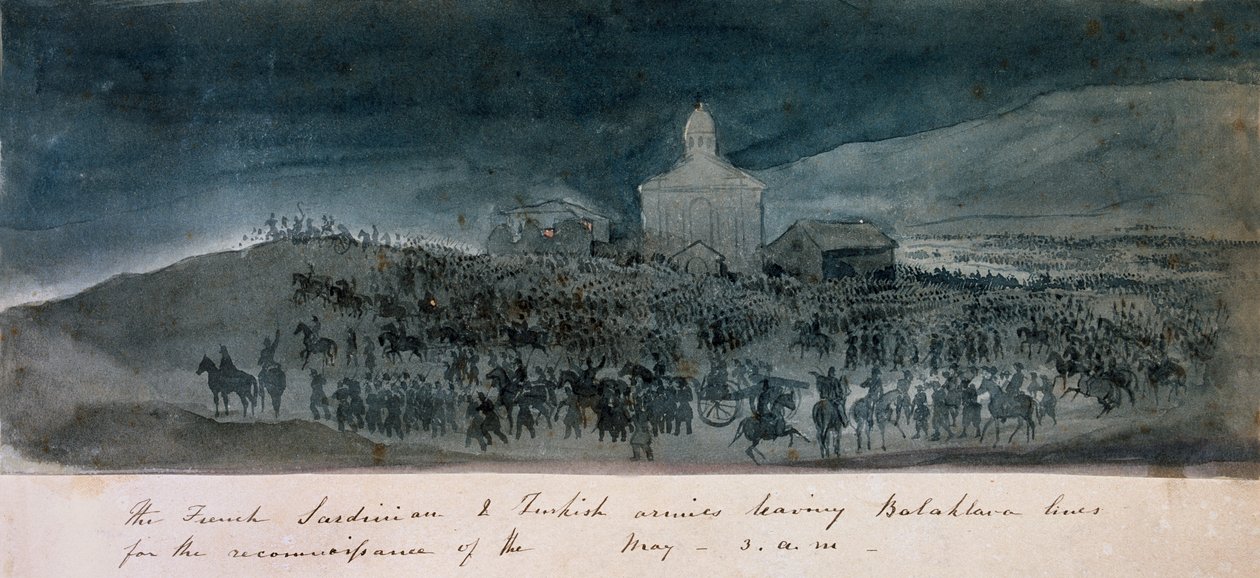 The French Sardinian & Turkish armies leaving Balaklava lines
for the reconnaissance of the May - 3. a.m -